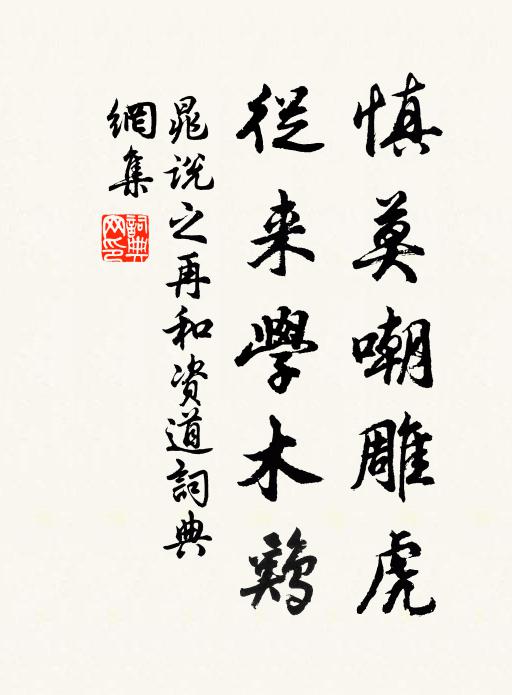 慎莫嘲雕虎
從来學木鷄
晁說之再和资道詞典
網集
詞典網印